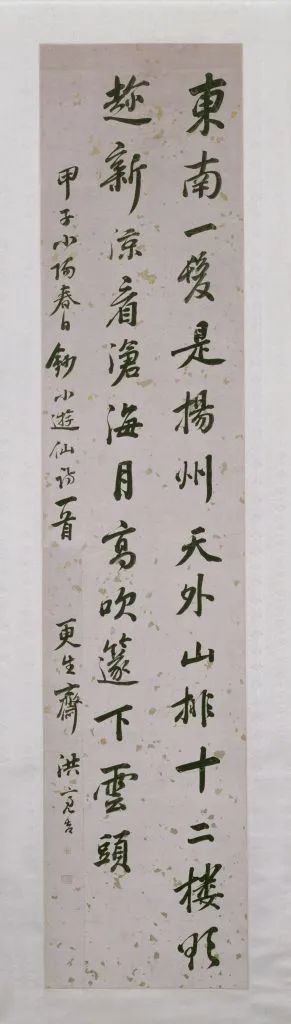 東南一髮是揚州天外山排十二樓欲
趁新涼看滄海月高吹篴下雲頭
甲子小陽春日鈔小遊仙詩一首 更生齋洪亮吉